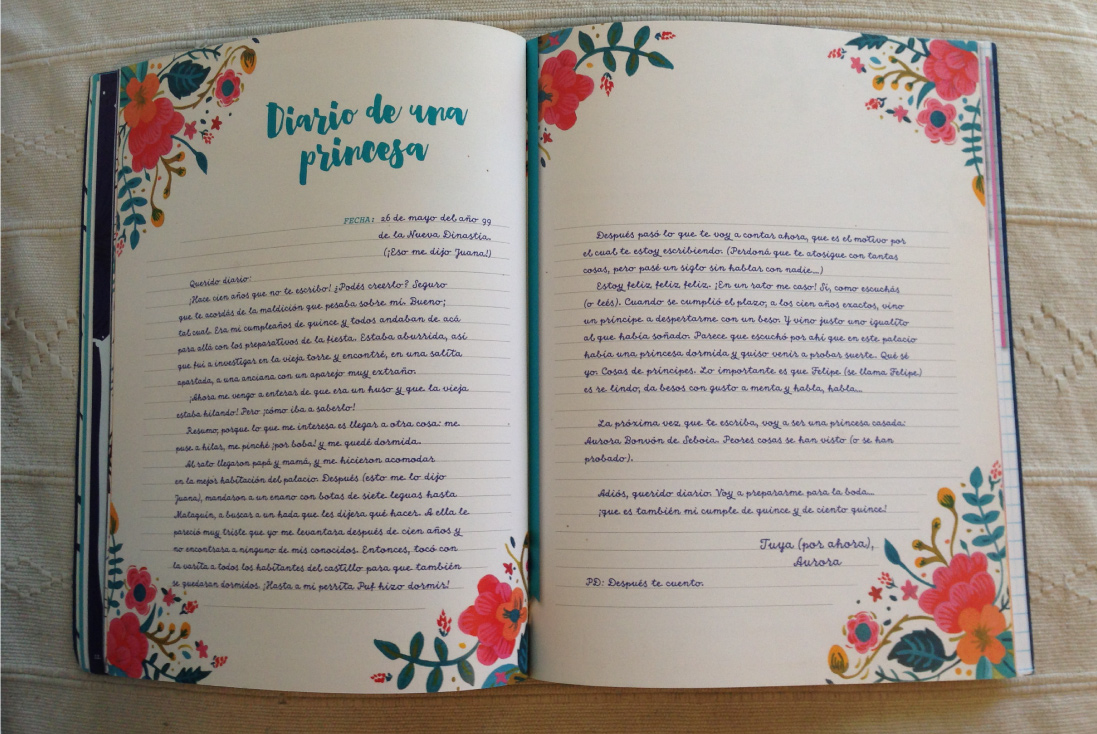 Diario de una
princesa
FECHA: 26 de mayo del año 99
de la Nueva Dinastía.
(¡Eso me dijo Juana!)
Querido diario:
¡Hace cien años que no te escribo! ¿Podés creerlo? Seguro
que te acordás de la maldición que pesaba sobre mí. Bueno;
tal cual. Era mi cumpleaños de quince y todos andaban de acá
para allá con los preparativos de la fiesta. Estaba aburrida, así
que fui a investigar en la vieja torre y encontré, en una salita
apartada, a una anciana con un aparejo muy extraño.
¡Ahora me vengo a enterar de que era un huso y que la vieja
estaba hilando! Pero ¡cómo iba a saberlo!
Resumo, porque lo que me interesa es llegar a otra cosa: me
puse a hilar, me pinché ¡por boba! y me quedé dormida.
Al rato llegaron papá y mamá, y me hicieron acomodar
en la mejor habitación del palacio. Después (esto me lo dijo
Juana), mandaron a un enano con botas de siete leguas hasta
Mataquín, a buscar a un hada que les dijera qué hacer. A ella le
pareció muy triste que yo me levantara después de cien años y
no encontrara a ninguno de mis conocidos. Entonces, tocó con
la varita a todos los habitantes del castillo para que también
se quedaran dormidos. ¡Hasta a mi perrita Puf hizo dormir!
Después pasó lo que te voy a contar ahora, que es el motivo por
el cual te estoy escribiendo. (Perdoná que te atosigue con tantas
cosas, pero pasé un siglo sin hablar con nadie...)
Estoy feliz feliz feliz. ¡En un rato me caso! Sí, como escuchás
(o leés). Cuando se cumplió el plazo, a los cien años exactos, vino
un príncipe a despertarme con un beso. Y vino justo uno igualito
al que había soñado. Parece que escuchó por ahí que en este palacio
había una princesa dormida y quiso venir a probar suerte. Qué sé
yo. Cosas de príncipes. Lo importante es que Felipe (se llama Felipe)
es re lindo, da besos con gusto a menta y habla, habla...
La próxima vez que te escriba, voy a ser una princesa casada:
Aurora Bonvón de Seboia. Peores cosas se han visto (o se han
probado).
Adiós, querido diario. Voy a prepararme para la boda...
¡que es también mi cumple de quince y de ciento quince!
Tuya (por ahora),
Aurora
PD: Después te cuento.